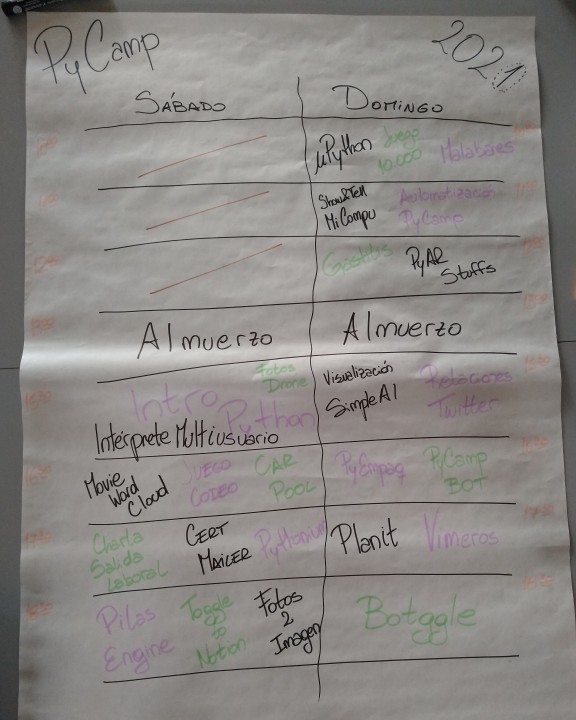 PyCamp
2021
SÁBADO
DOMINGO
µPython Juego 10.000 Malabares
Show&Tell MiCompu Automatización PyCamp
Gastitis PyAR Stuffs
Almuerzo
Almuerzo
Fotos Drone
Intro Python
Intérprete Multiusuario
Visualización SimpleAI Relaciones Twitter
Movie Word Cloud JUEGO CODEO CAR POOL
PyEmpaq PyCamp BOT
Charla Salida Laboral CERT MAILER Pythonium
Planit Vimeros
Pilas Engine Toggle to Notion Fotos 2 Imagen
Botggle